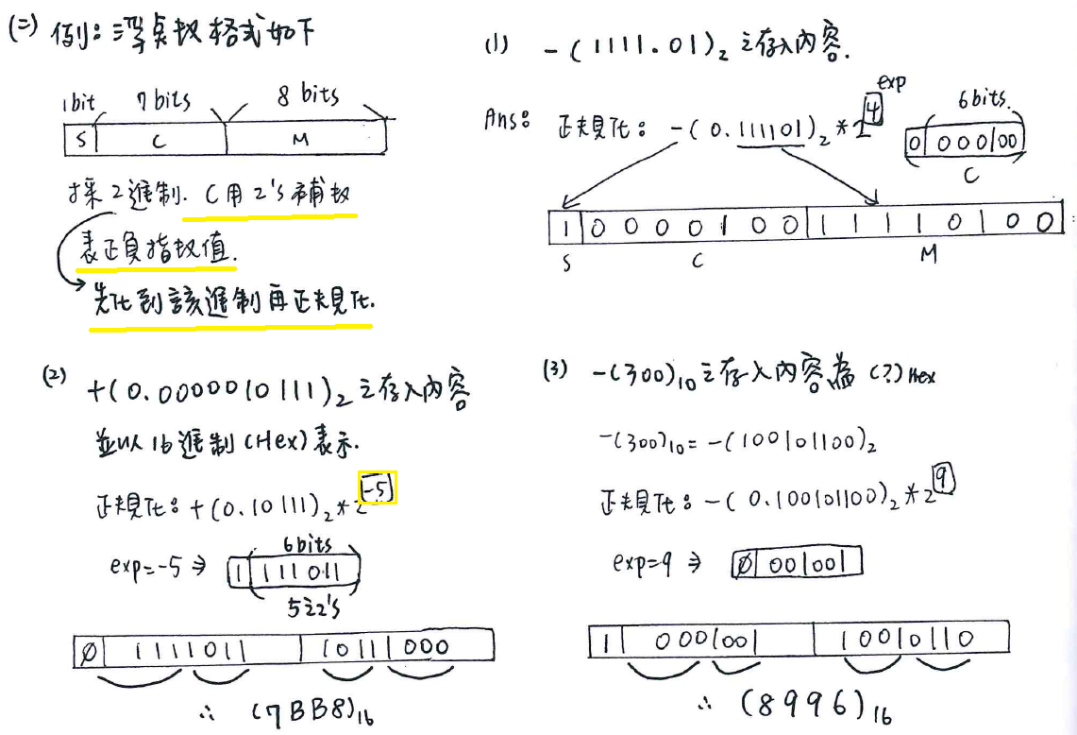 (二) 例:浮點數格式如下
1bit 7bits 8 bits
S C M
採2進制. C用2's補數
表正負指數值.
先化到該進制再正規化.
(1) -(1111.01)₂之存入內容.
Ans: 正規化: -(0.111101)₂*2⁴ exp
6bits.
0 000100
C
1 0000100 11110100
S C M
(2) +(0.0000010111)₂之存入內容
並以16進制(Hex)表示.
正規化: +(0.10111)₂*2⁻⁵
6bits
exp=-5 ⇒ 1 111011
5之2's
0 1111011 10111000
∴ (7BB8)₁₆
(3) -(300)₁₀之存入內容為(?)Hex
-(300)₁₀=-(100101100)₂
正規化: -(0.100101100)₂*2⁹
exp=9 ⇒ 0 001001
1 0001001 10010110
∴ (8996)₁₆